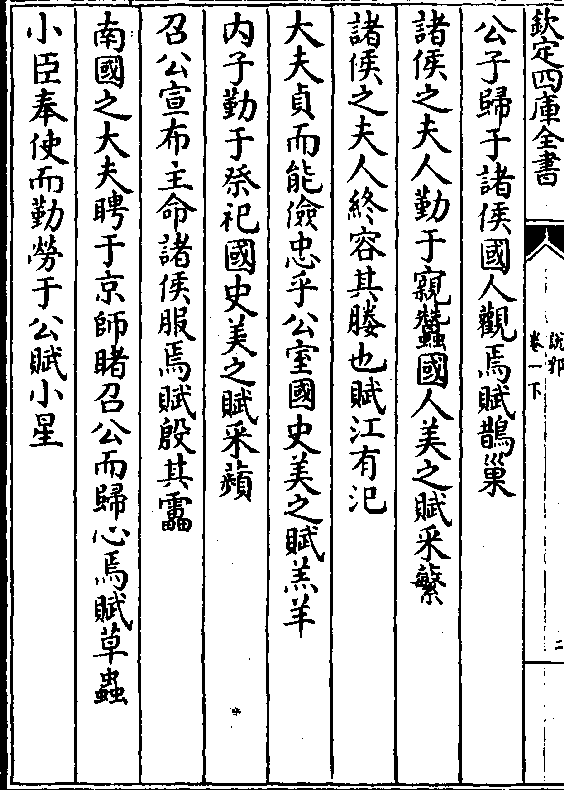 欽定四庫全書
說郛
卷一下
二
公子歸于諸侯國人觀焉賦鵲巢
諸侯之夫人勤于親蠶國人美之賦采蘩
諸侯之夫人終容其媵也賦江有汜
大夫貞而能儉忠乎公室國史美之賦羔羊
内子勤于祭祀國史美之賦采蘋
召公宣布主命諸侯服焉賦殷其靁
南國之大夫聘于京師睹召公而歸心焉賦草蟲
小臣奉使而勤勞于公賦小星